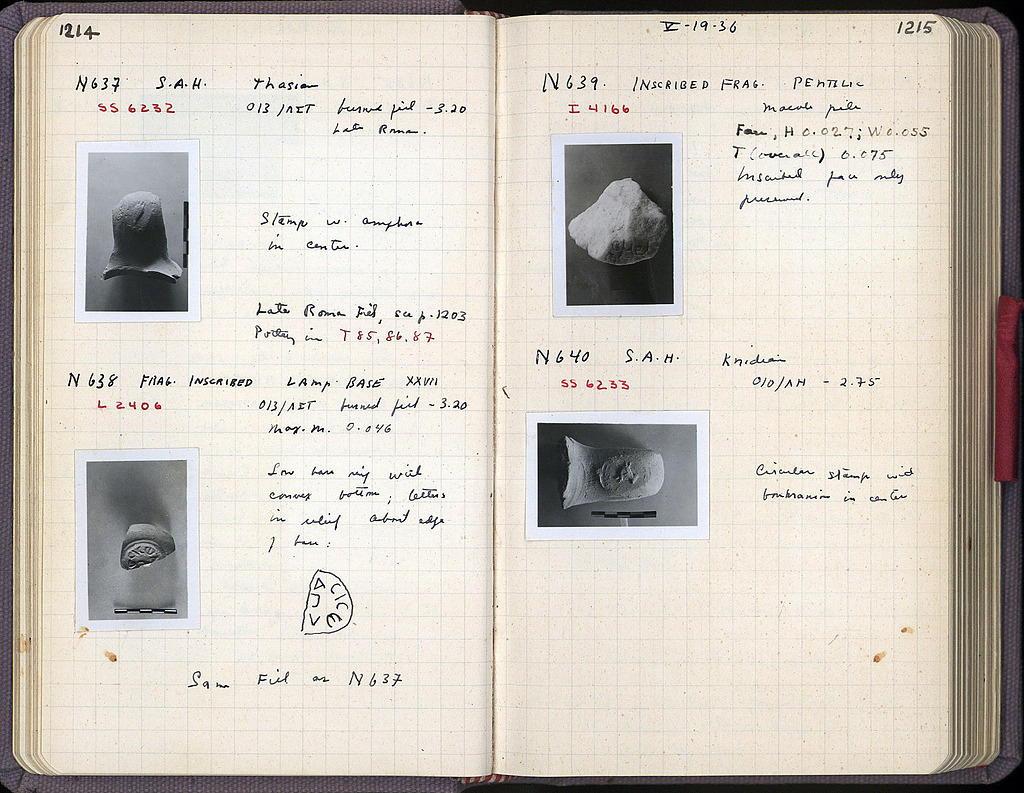 1214
N637 S.A.H. Thasian
SS 6232 O13/ΛΣΤ burned fill -3.20
Late Roman.
Stamp w. amphora
in center.
Late Roman Fill, see p. 1203
Pottery in T 85, 86, 87
N 638 FRAG. INSCRIBED LAMP BASE XXVII
L 2406 O13/ΛΣΤ burned fill -3.20
Max. m. 0.046
Low base ring with
convex bottom; letters
in relief about edge
of base:
Same Fill as N637
V-19-36
1215
N639. INSCRIBED FRAG. PENTELIC
I 4166 Marble pile
Face, H 0.027; W 0.055
T (overall) 0.075
Inscribed face only
preserved.
N640 S.A.H. Knidian
SS 6233 O/O/ΛH - 2.75
Circular stamp with
boukranion in center